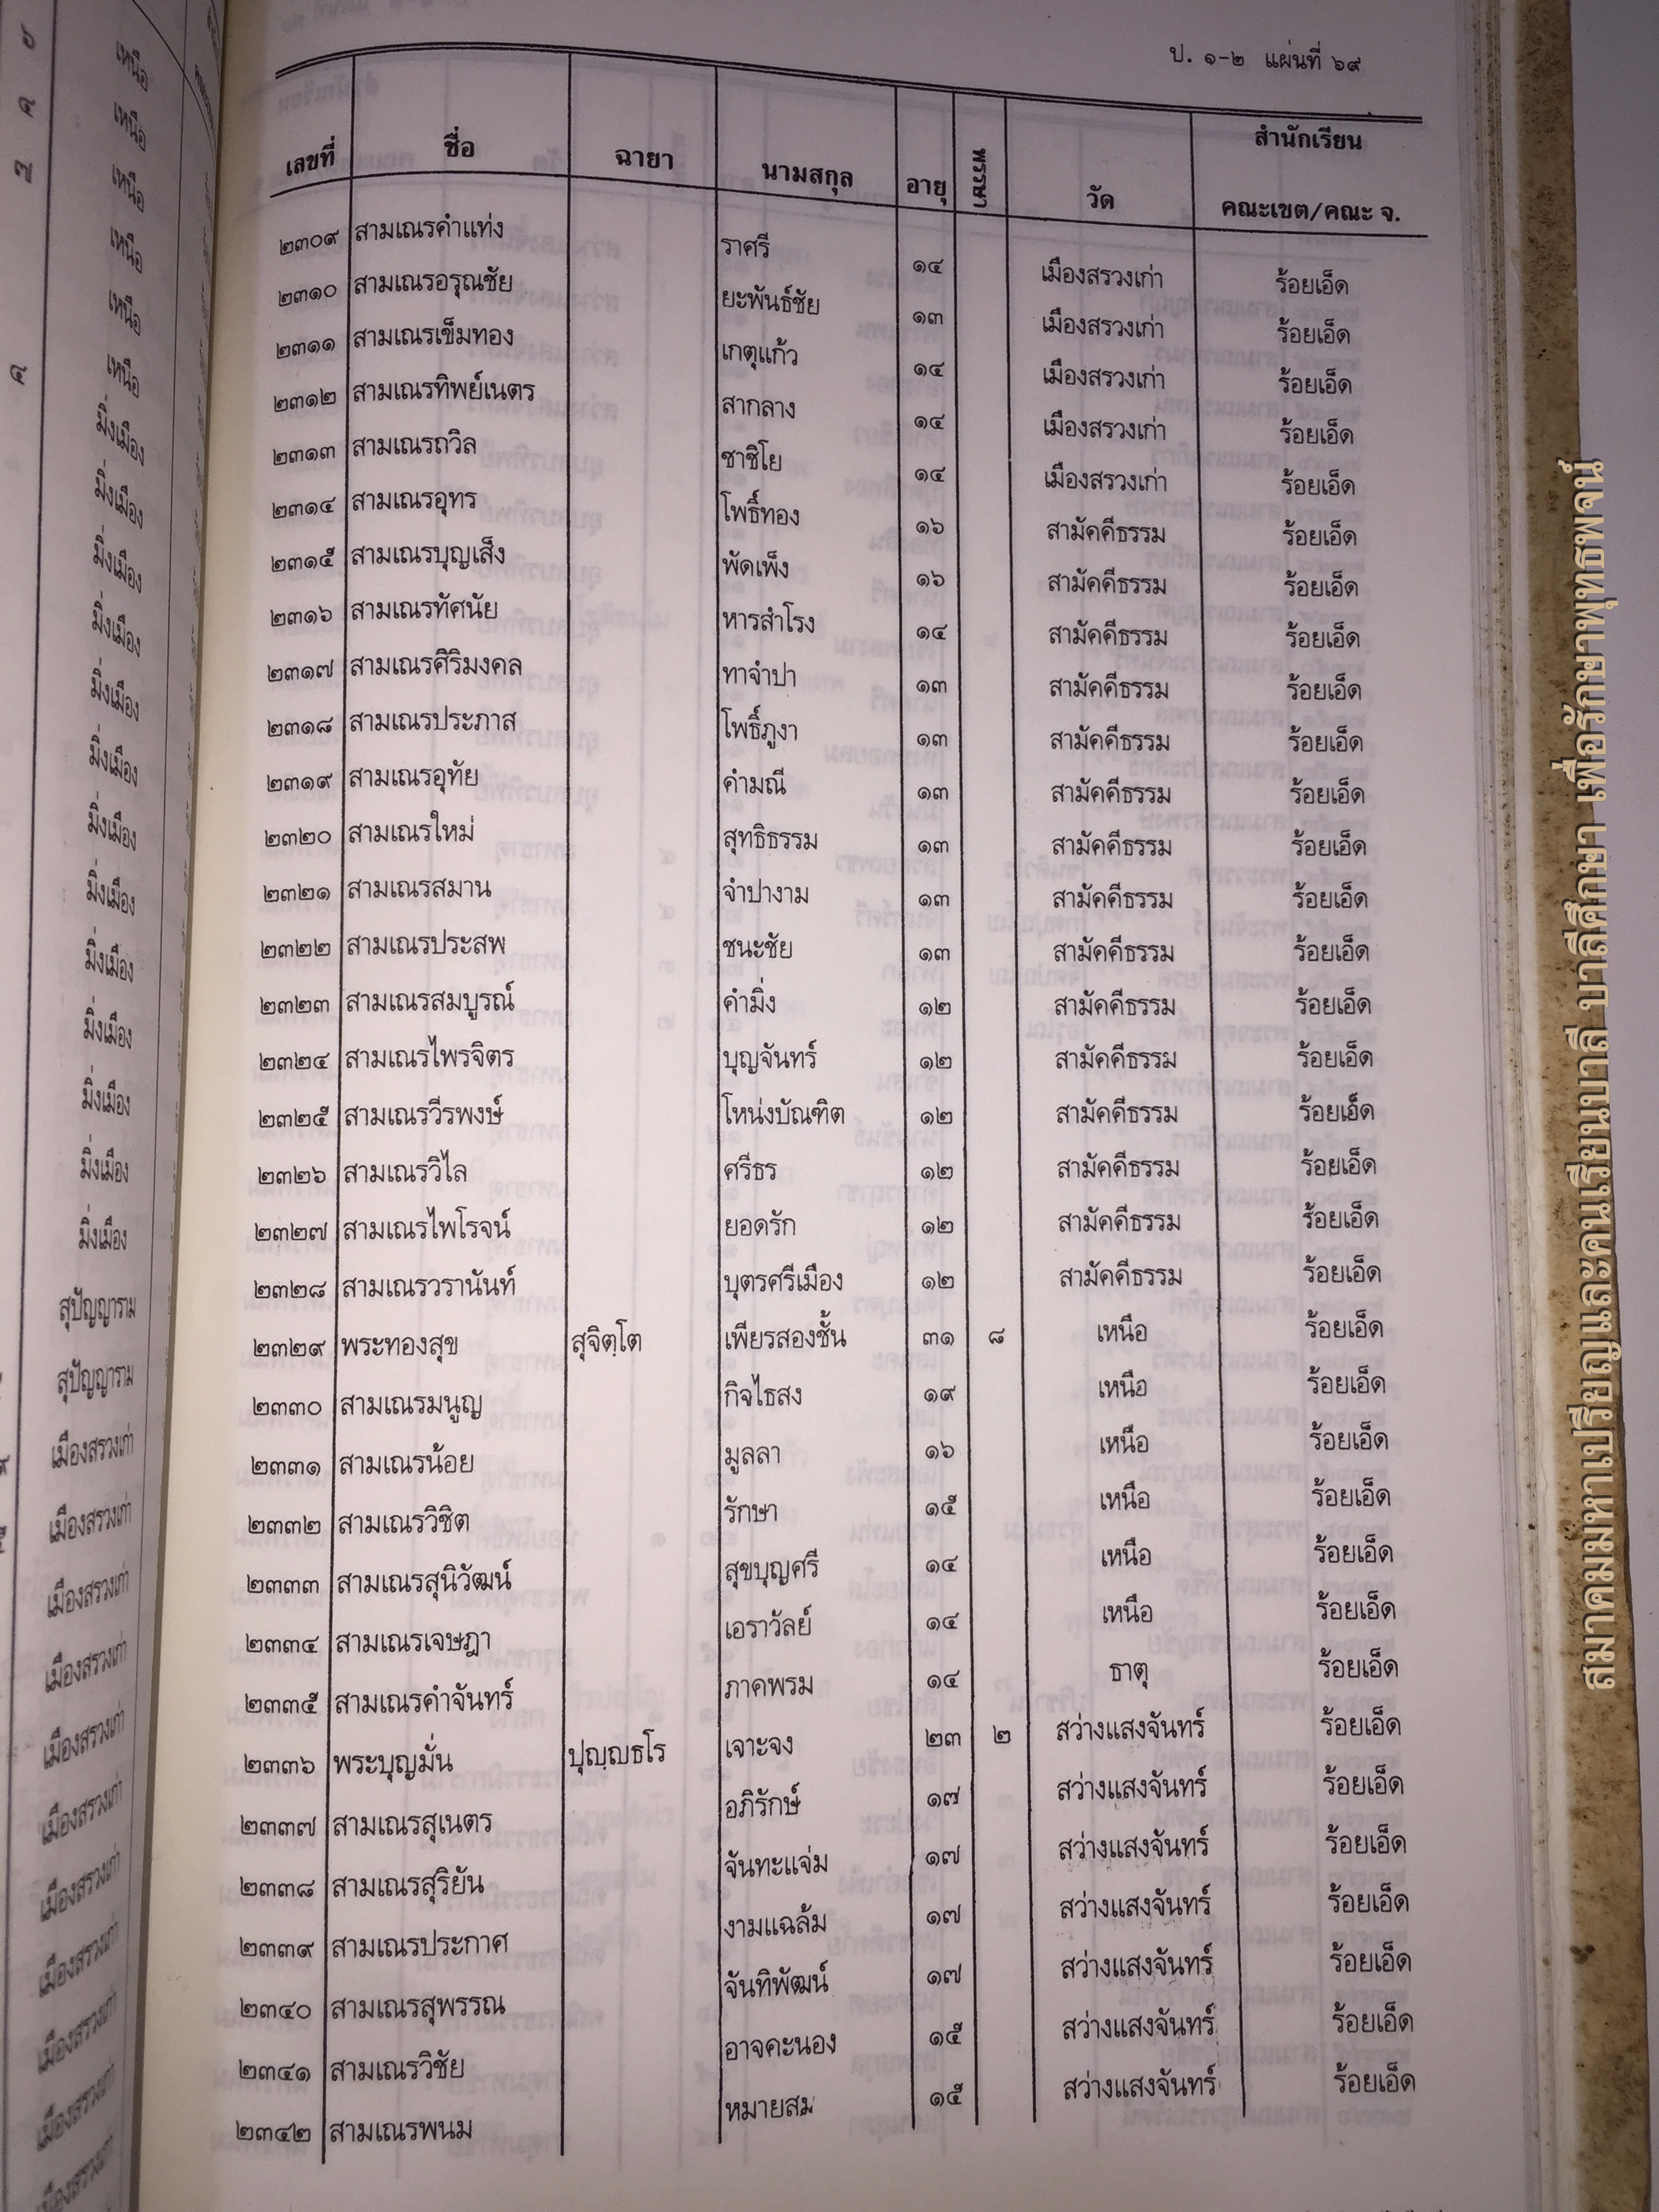 เหนือ
เหนือ
เหนือ
เหนือ
เหนือ
เหนือ
มิ่งเมือง
มิ่งเมือง
มิ่งเมือง
มิ่งเมือง
มิ่งเมือง
มิ่งเมือง
มิ่งเมือง
มิ่งเมือง
มิ่งเมือง
มิ่งเมือง
มิ่งเมือง
มิ่งเมือง
มิ่งเมือง
สุปัญญาราม
สุปัญญาราม
เมืองสรวงเก่า
เมืองสรวงเก่า
เมืองสรวงเก่า
เมืองสรวงเก่า
เมืองสรวงเก่า
เมืองสรวงเก่า
เมืองสรวงเก่า
เมืองสรวงเก่า
เมืองสรวงเก่า
เมืองสรวงเก่า
ป. ๑-๒ แผ่นที่ ๖๙
เลขที่ ชื่อ ฉายา นามสกุล อายุ พรรษา วัด สำนักเรียน
คณะเขต/คณะ จ.
๒๓๐๙ สามเณรคำแท่ง ราศรี ๑๔ เมืองสรวงเก่า ร้อยเอ็ด
๒๓๑๐ สามเณรอรุณชัย ยะพันธ์ชัย ๑๓ เมืองสรวงเก่า ร้อยเอ็ด
๒๓๑๑ สามเณรเข็มทอง เกตุแก้ว ๑๔ เมืองสรวงเก่า ร้อยเอ็ด
๒๓๑๒ สามเณรทิพย์เนตร สากลาง ๑๔ เมืองสรวงเก่า ร้อยเอ็ด
๒๓๑๓ สามเณรถวิล ซาชิโย ๑๔ เมืองสรวงเก่า ร้อยเอ็ด
๒๓๑๔ สามเณรอุทร โพธิ์ทอง ๑๖ สามัคคีธรรม ร้อยเอ็ด
๒๓๑๕ สามเณรบุญเส็ง พัดเพ็ง ๑๖ สามัคคีธรรม ร้อยเอ็ด
๒๓๑๖ สามเณรทัศนัย หารสำโรง ๑๔ สามัคคีธรรม ร้อยเอ็ด
๒๓๑๗ สามเณรศิริมงคล ทาจำปา ๑๓ สามัคคีธรรม ร้อยเอ็ด
๒๓๑๘ สามเณรประภาส โพธิ์ภูงา ๑๓ สามัคคีธรรม ร้อยเอ็ด
๒๓๑๙ สามเณรอุทัย คำมณี ๑๓ สามัคคีธรรม ร้อยเอ็ด
๒๓๒๐ สามเณรใหม่ สุทธิธรรม ๑๓ สามัคคีธรรม ร้อยเอ็ด
๒๓๒๑ สามเณรสมาน จำปางาม ๑๓ สามัคคีธรรม ร้อยเอ็ด
๒๓๒๒ สามเณรประสพ ชนะชัย ๑๓ สามัคคีธรรม ร้อยเอ็ด
๒๓๒๓ สามเณรสมบูรณ์ คำมิ่ง ๑๒ สามัคคีธรรม ร้อยเอ็ด
๒๓๒๔ สามเณรไพรจิตร บุญจันทร์ ๑๒ สามัคคีธรรม ร้อยเอ็ด
๒๓๒๕ สามเณรวีรพงษ์ โหน่งบัณฑิต ๑๒ สามัคคีธรรม ร้อยเอ็ด
๒๓๒๖ สามเณรวิไล ศรีธร ๑๒ สามัคคีธรรม ร้อยเอ็ด
๒๓๒๗ สามเณรไพโรจน์ ยอดรัก ๑๒ สามัคคีธรรม ร้อยเอ็ด
๒๓๒๘ สามเณรวรานันท์ บุตรศรีเมือง ๑๒ สามัคคีธรรม ร้อยเอ็ด
๒๓๒๙ พระทองสุข สุจิตฺโต เพียรสองชั้น ๓๑ ๘ เหนือ ร้อยเอ็ด
๒๓๓๐ สามเณรมนูญ กิจไธสง ๑๙ เหนือ ร้อยเอ็ด
๒๓๓๑ สามเณรน้อย มูลลา ๑๖ เหนือ ร้อยเอ็ด
๒๓๓๒ สามเณรวิชิต รักษา ๑๕ เหนือ ร้อยเอ็ด
๒๓๓๓ สามเณรสุนิวัฒน์ สุขบุญศรี ๑๔ เหนือ ร้อยเอ็ด
๒๓๓๔ สามเณรเจษฎา เอราวัลย์ ๑๔ เหนือ ร้อยเอ็ด
๒๓๓๕ สามเณรคำจันทร์ ภาคพรม ๑๔ ธาตุ ร้อยเอ็ด
๒๓๓๖ พระบุญมั่น ปุญฺญธโร เจาะจง ๒๓ ๒ สว่างแสงจันทร์ ร้อยเอ็ด
๒๓๓๗ สามเณรสุเนตร อภิรักษ์ ๑๗ สว่างแสงจันทร์ ร้อยเอ็ด
๒๓๓๘ สามเณรสุริยัน จันทะแจ่ม ๑๗ สว่างแสงจันทร์ ร้อยเอ็ด
๒๓๓๙ สามเณรประกาศ งามแฉล้ม ๑๗ สว่างแสงจันทร์ ร้อยเอ็ด
๒๓๔๐ สามเณรสุพรรณ จันทิพัฒน์ ๑๗ สว่างแสงจันทร์ ร้อยเอ็ด
๒๓๔๑ สามเณรวิชัย อาจคะนอง ๑๕ สว่างแสงจันทร์ ร้อยเอ็ด
๒๓๔๒ สามเณรพนม หมายสม ๑๕ สว่างแสงจันทร์ ร้อยเอ็ด
สมาคมมหาเปรียญและคนเรียนบาลี บาลีศึกษา เพื่อรักษาพุทธพจน์